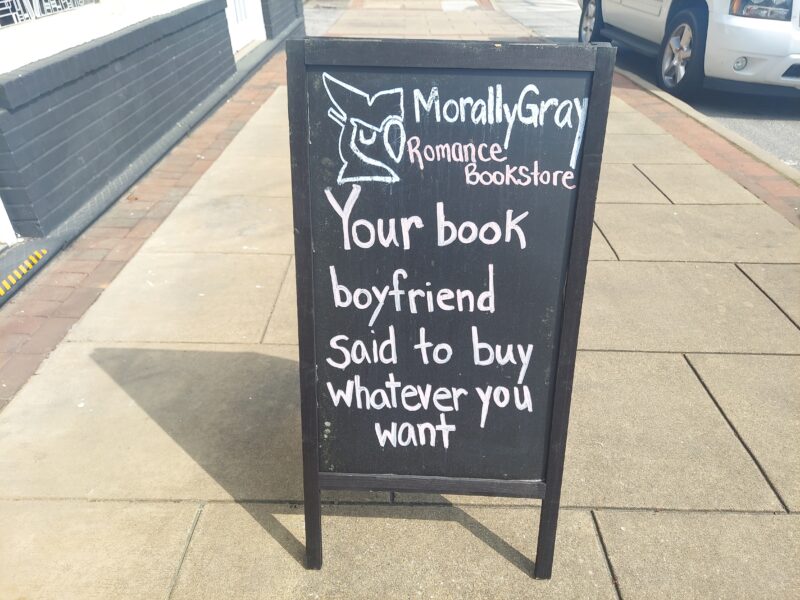 MorallyGray
Romance
Bookstore
Your book
boyfriend
said to buy
whatever you
want